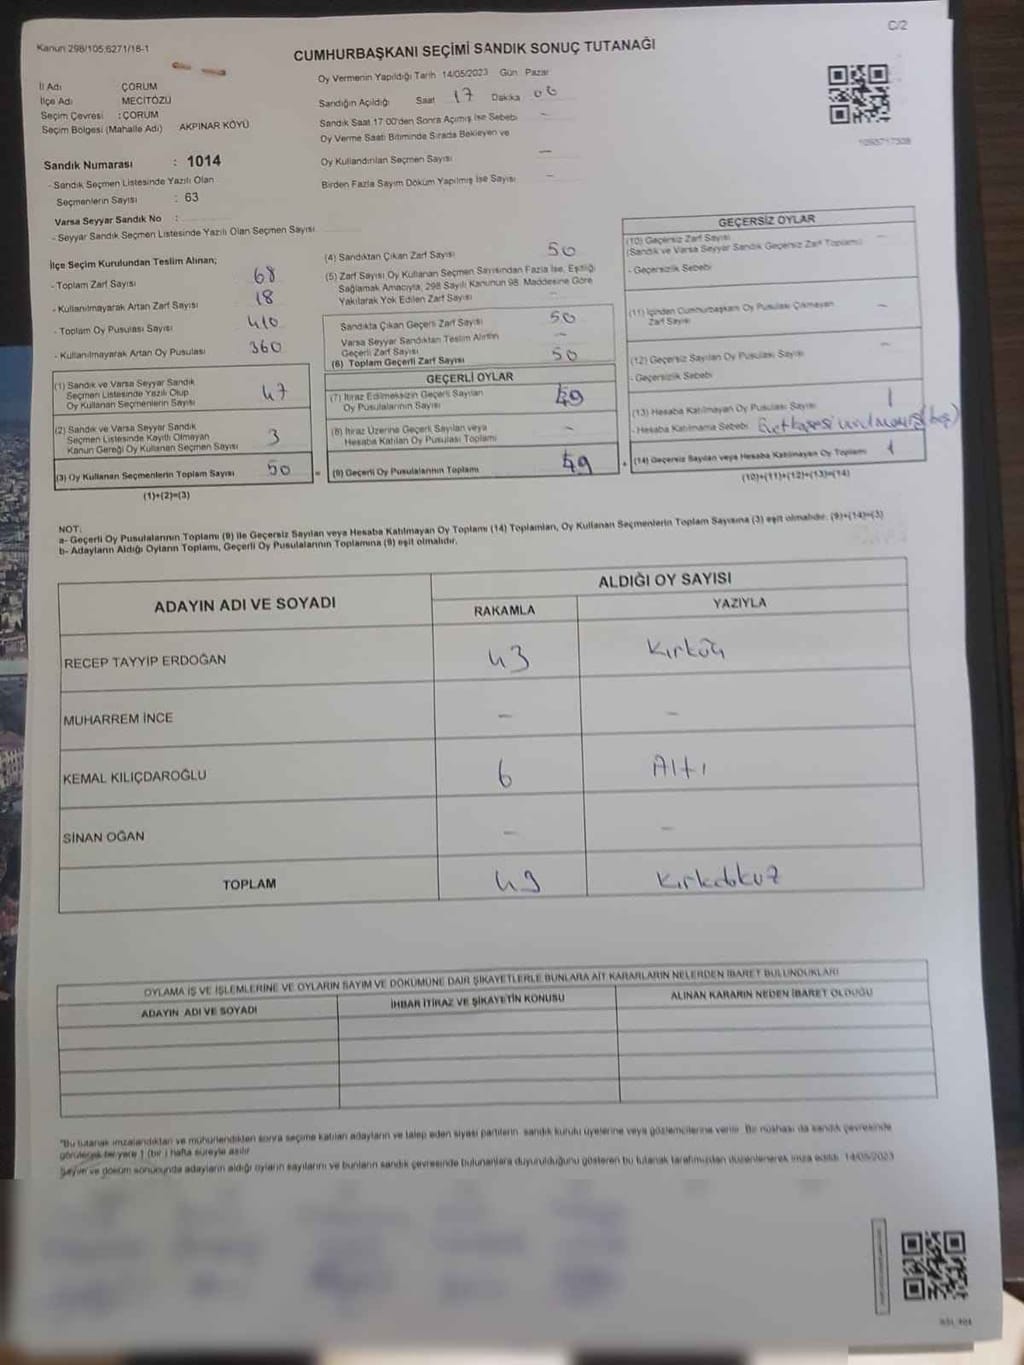 Kanun 298/105,6271/18-1
C/2
CUMHURBAŞKANI SEÇİMİ SANDIK SONUÇ TUTANAĞI
İl Adı ÇORUM
İlçe Adı MECİTÖZÜ
Seçim Çevresi : ÇORUM
Seçim Bölgesi (Mahalle Adı) AKPINAR KÖYÜ
Oy Vermenin Yapıldığı Tarih 14/05/2023 Gün Pazar
Sandığın Açıldığı Saat 17 Dakika 06
Sandık Saat 17:00'den Sonra Açımış İse Sebebi —
Oy Verme Saati Bitiminde Sırada Bekleyen ve
Oy Kullandırılan Seçmen Sayısı —
Birden Fazla Sayım Döküm Yapılmış İse Sayısı —
Sandık Numarası : 1014
- Sandık Seçmen Listesinde Yazılı Olan
Seçmenlerin Sayısı : 63
Varsa Seyyar Sandık No :
- Seyyar Sandık Seçmen Listesinde Yazılı Olan Seçmen Sayısı
İlçe Seçim Kurulundan Teslim Alınan;
- Toplam Zarf Sayısı 68
- Kullanılmayarak Artan Zarf Sayısı 18
- Toplam Oy Pusulası Sayısı 410
- Kullanılmayarak Artan Oy Pusulası 360
(1) Sandık ve Varsa Seyyar Sandık
Seçmen Listesinde Yazılı Olup
Oy Kullanan Seçmenlerin Sayısı 47
(2) Sandık ve Varsa Seyyar Sandık
Seçmen Listesinde Kayıtlı Olmayan
Kanun Gereği Oy Kullanan Seçmen Sayısı 3
(3) Oy Kullanan Seçmenlerin Toplam Sayısı 50
(1)+(2)=(3)
(4) Sandıktan Çıkan Zarf Sayısı 50
(5) Zarf Sayısı Oy Kullanan Seçmen Sayısından Fazla İse, Eşitliği
Sağlamak Amacıyla, 298 Sayılı Kanunun 98. Maddesine Göre
Yakılarak Yok Edilen Zarf Sayısı
Sandıkta Çıkan Geçerli Zarf Sayısı 50
Varsa Seyyar Sandıktan Teslim Alınan
Geçerli Zarf Sayısı —
(6) Toplam Geçerli Zarf Sayısı 50
GEÇERLİ OYLAR
(7) İtiraz Edilmeksizin Geçerli Sayılan
Oy Pusulalarının Sayısı 49
(8) İtiraz Üzerine Geçerli Sayılan veya
Hesaba Katılan Oy Pusulası Toplamı —
(9) Geçerli Oy Pusulalarının Toplamı 49
GEÇERSİZ OYLAR
(10) Geçersiz Zarf Sayısı —
(Sandık ve Varsa Seyyar Sandık Geçersiz Zarf Toplamı)
- Geçersizlik Sebebi
(11) İçinden Cumhurbaşkanı Oy Pusulası Çıkmayan
Zarf Sayısı —
(12) Geçersiz Sayılan Oy Pusulası Sayısı —
- Geçersizlik Sebebi
(13) Hesaba Katılmayan Oy Pusulası Sayısı 1
- Hesaba Katılmama Sebebi Evet kaşesi vurulmamış (boş)
(14) Geçersiz Sayılan veya Hesaba Katılmayan Oy Toplamı 1
(10)+(11)+(12)+(13)=(14)
NOT:
a- Geçerli Oy Pusulalarının Toplamı (9) ile Geçersiz Sayılan veya Hesaba Katılmayan Oy Toplamı (14) Toplamları, Oy Kullanan Seçmenlerin Toplam Sayısına (3) eşit olmalıdır. (9)+(14)=(3)
b- Adayların Aldığı Oyların Toplamı, Geçerli Oy Pusulalarının Toplamına (9) eşit olmalıdır.
ADAYIN ADI VE SOYADI ALDIĞI OY SAYISI
RAKAMLA YAZIYLA
RECEP TAYYİP ERDOĞAN 43 Kırküç
MUHARREM İNCE — —
KEMAL KILIÇDAROĞLU 6 Altı
SİNAN OĞAN — —
TOPLAM 49 Kırkdokuz
OYLAMA İŞ VE İŞLEMLERİNE VE OYLARIN SAYIM VE DÖKÜMÜNE DAİR ŞİKAYETLERLE BUNLARA AİT KARARLARIN NELERDEN İBARET BULUNDUKLARI
ADAYIN ADI VE SOYADI İHBAR İTİRAZ VE ŞİKAYETİN KONUSU ALINAN KARARIN NEDEN İBARET OLDUĞU
"Bu tutanak imzalandıktan ve mühürlendikten sonra seçime katılan adayların ve talep eden siyasi partilerin sandık kurulu üyelerine veya gözlemcilerine verilir. Bir nüshası da sandık çevresinde
görülecek bir yere 1 (bir) hafta süreyle asılır
Sayım ve döküm sonucunda adayların aldığı oyların sayılarını ve bunların sandık çevresinde bulunanlara duyurulduğunu gösteren bu tutanak tarafımızdan düzenlenerek imza edildi. 14/05/2023